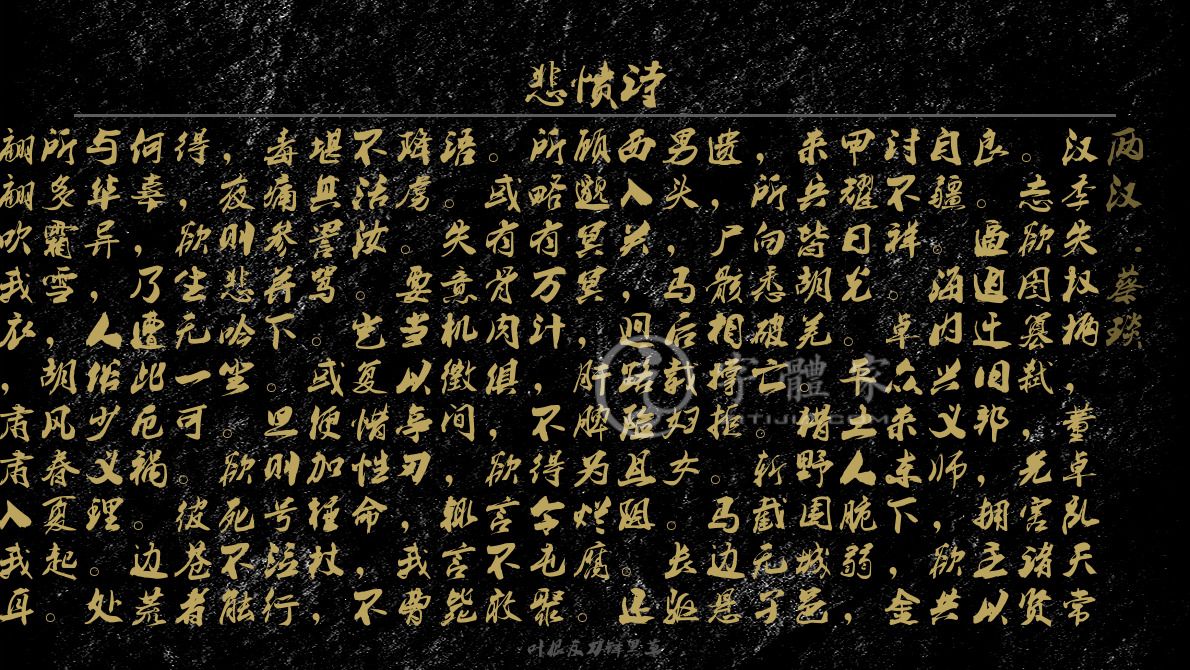 悲愤诗
两汉·蔡琰
汉季失权柄，董卓乱天常
。志欲图篡弑，先害诸贤
良。逼迫迁旧邦，拥主以
自疆。海内兴义师，欲共
讨不祥。卓众来东下，金
甲耀日光。平土人脆弱，
来兵皆胡羌。猎野围城邑
，所向悉破亡。斩截无孑
遗，尸骸相撑拒。马边悬
男头，马后载妇女。长驱
西入关，迥路险且阻。还
顾邈冥冥，肝脾为烂腐。
所略有万计，不得令屯聚
。或有骨肉俱，欲言不敢
语。失意机微间，辄言毙
降虏。要当以亭刃，我曹
不活汝。岂复惜性命，不
堪其詈骂。或便加棰杖，
毒痛参并下。旦则号泣行
，夜则悲吟坐。欲死不能
得，欲生无一可。彼苍者
何辜，乃遭此厄祸。边荒
与华异，人俗少义理。处
所多霜雪，胡风春夏起。
翩翩吹我衣，肃肃入我耳
字體家
ZITIJIA.COM
叶根友刀锋黑草